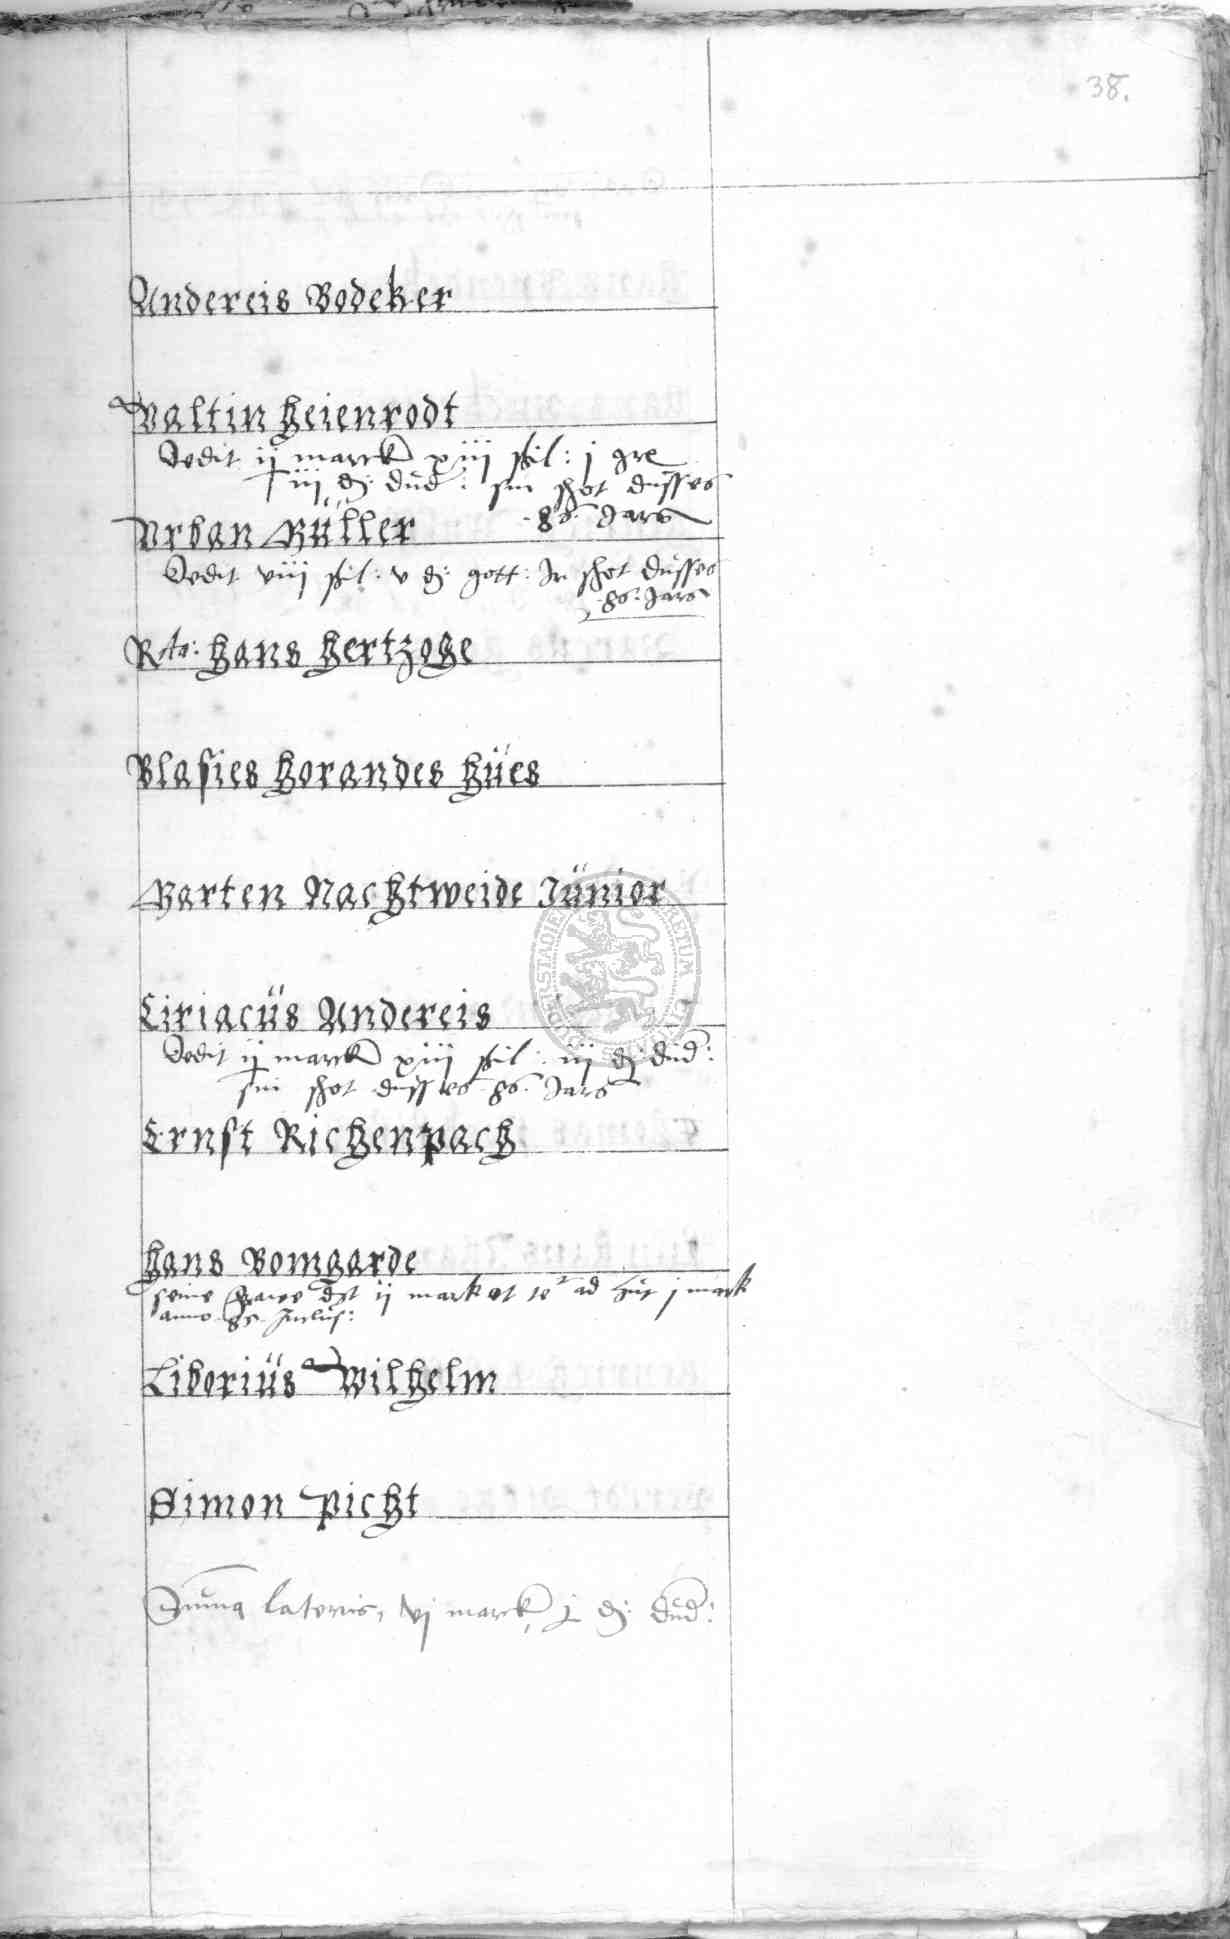 38.
Andereis Bodeker
Valtin Heienrodt
Dedit ij marck xiii ßil: j gre
iij d: dud: sin schot dusses
86. Jars
Urban Müller
Dedit viii ßil: v d: gott: In schot dusses
86. Jars
Hans Hertzoge
Blasies Horandes Hües
Marten Nachtweide Jünior
Ciriacüs Andereis
Dedit ij marck xiii ßil: iij d: dud:
sin schot dusses 86. Jars
Ernst Richenpach
Hans Bomgarde
seine ij mark et ad j mark
anno
Liboriüs Wilhelm
Simon Picht
Suma lateris, vj marck, j d: dud: